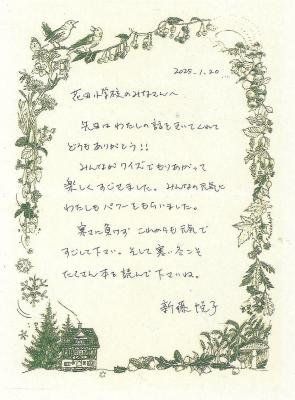 2025.1.20
花田小学校のみなさんへ
先日はわたしの話をきいてくれて
どうもありがとう!!
みんながクイズでもりあがって
楽しくすごせました。みんなの元気に
わたしもパワーをもらいました。
寒さに負けず これからも元気で
すごして下さい。そして寒い冬こそ
たくさん本を読んで下さいね。
新藤悦子